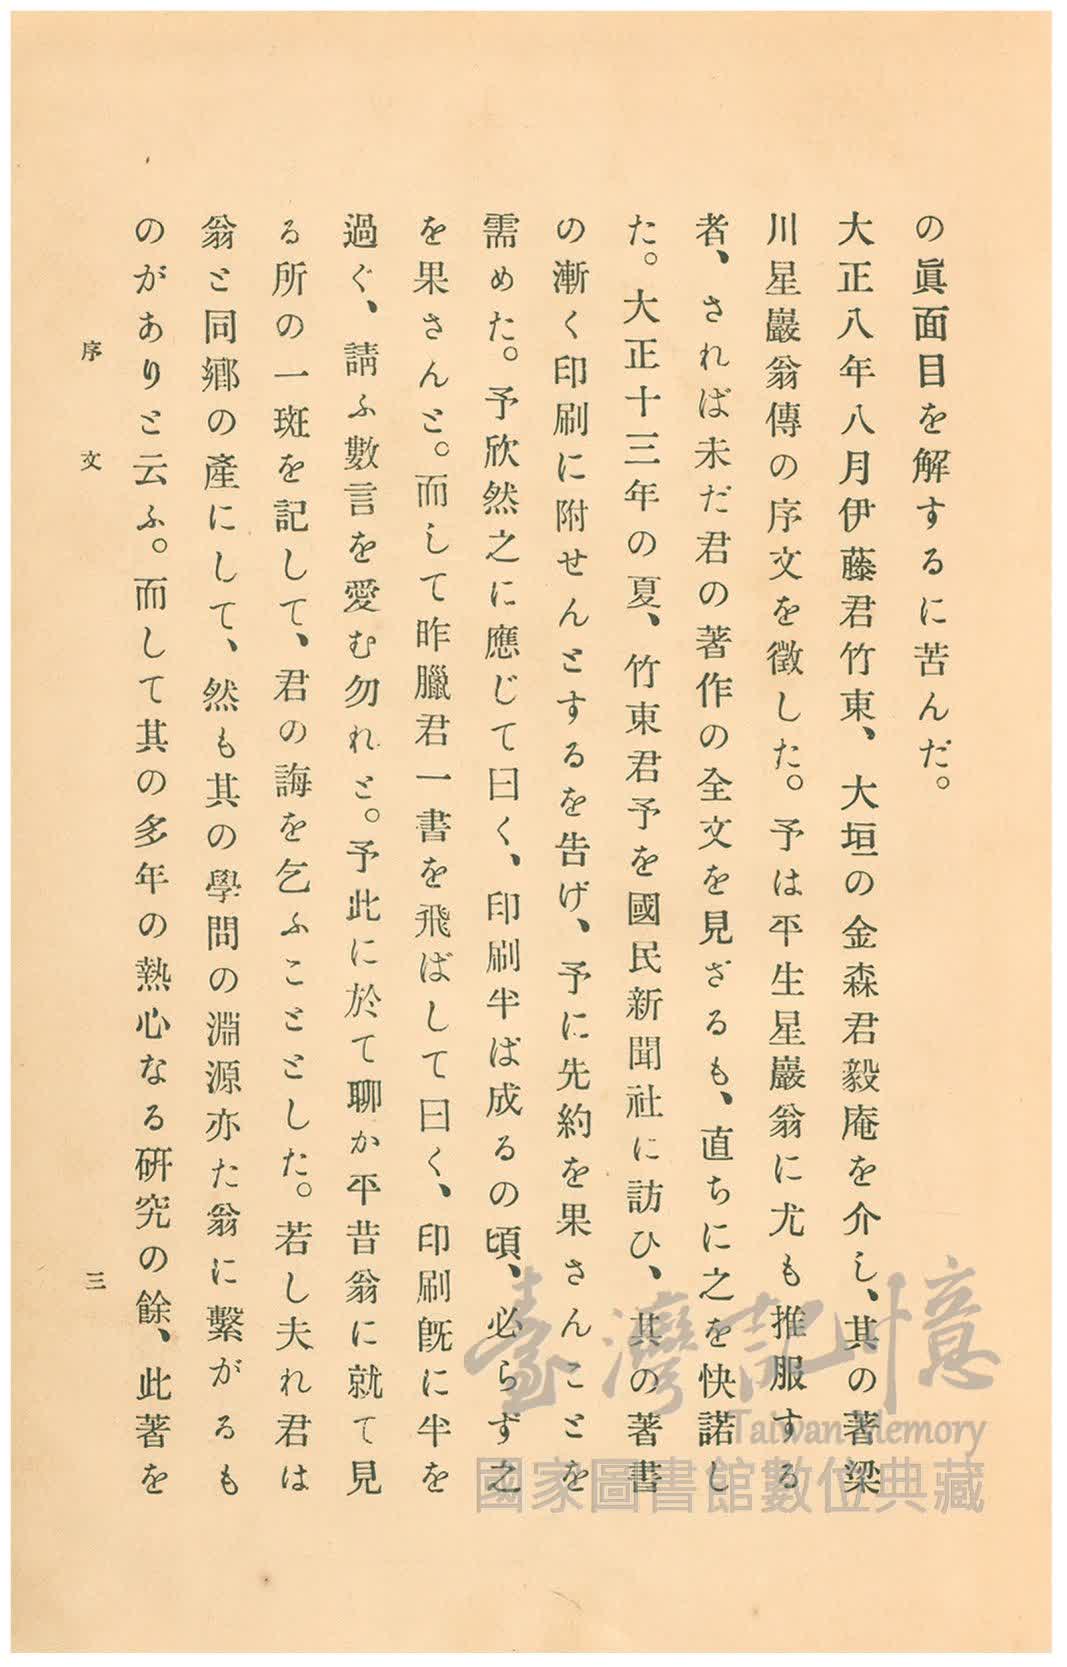 の眞面目を解するに苦んだ。
大正八年八月伊藤君竹東、大垣の金森君毅庵を介し、其の著梁
川星巖翁傳の序文を徵した。予は平生星巖翁に尤も推服する
者、されば未だ君の著作の全文を見ざるも、直ちに之を快諾し
た。大正十三年の夏、竹東君予を國民新聞社に訪ひ、其の著書
の漸く印刷に附せんとするを告げ、予に先約を果さんことを
需めた。予欣然之に應じて曰く、印刷半ば成るの頃、必らず之
を果さんと。而して昨臘君一書を飛ばして曰く、印刷旣に半を
過ぐ、請ふ數言を愛む勿れと。予此に於て聊か平昔翁に就て見
る所の一斑を記して、君の誨を乞ふことゝした。若し夫れ君は
翁と同鄕の產にして、然も其の學問の淵源亦た翁に繫がるも
のがありと云ふ。而して其の多年の熱心なる硏究の餘、此著を
序文 三
臺灣記憶
Taiwan Memory
國家圖書館數位典藏